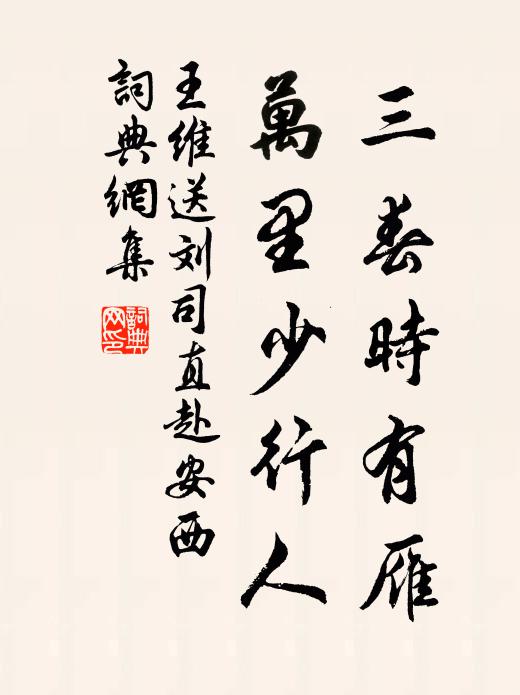 三春時有雁
萬里少行人
王維送刘司直赴安西
詞典網集
詞典
网印